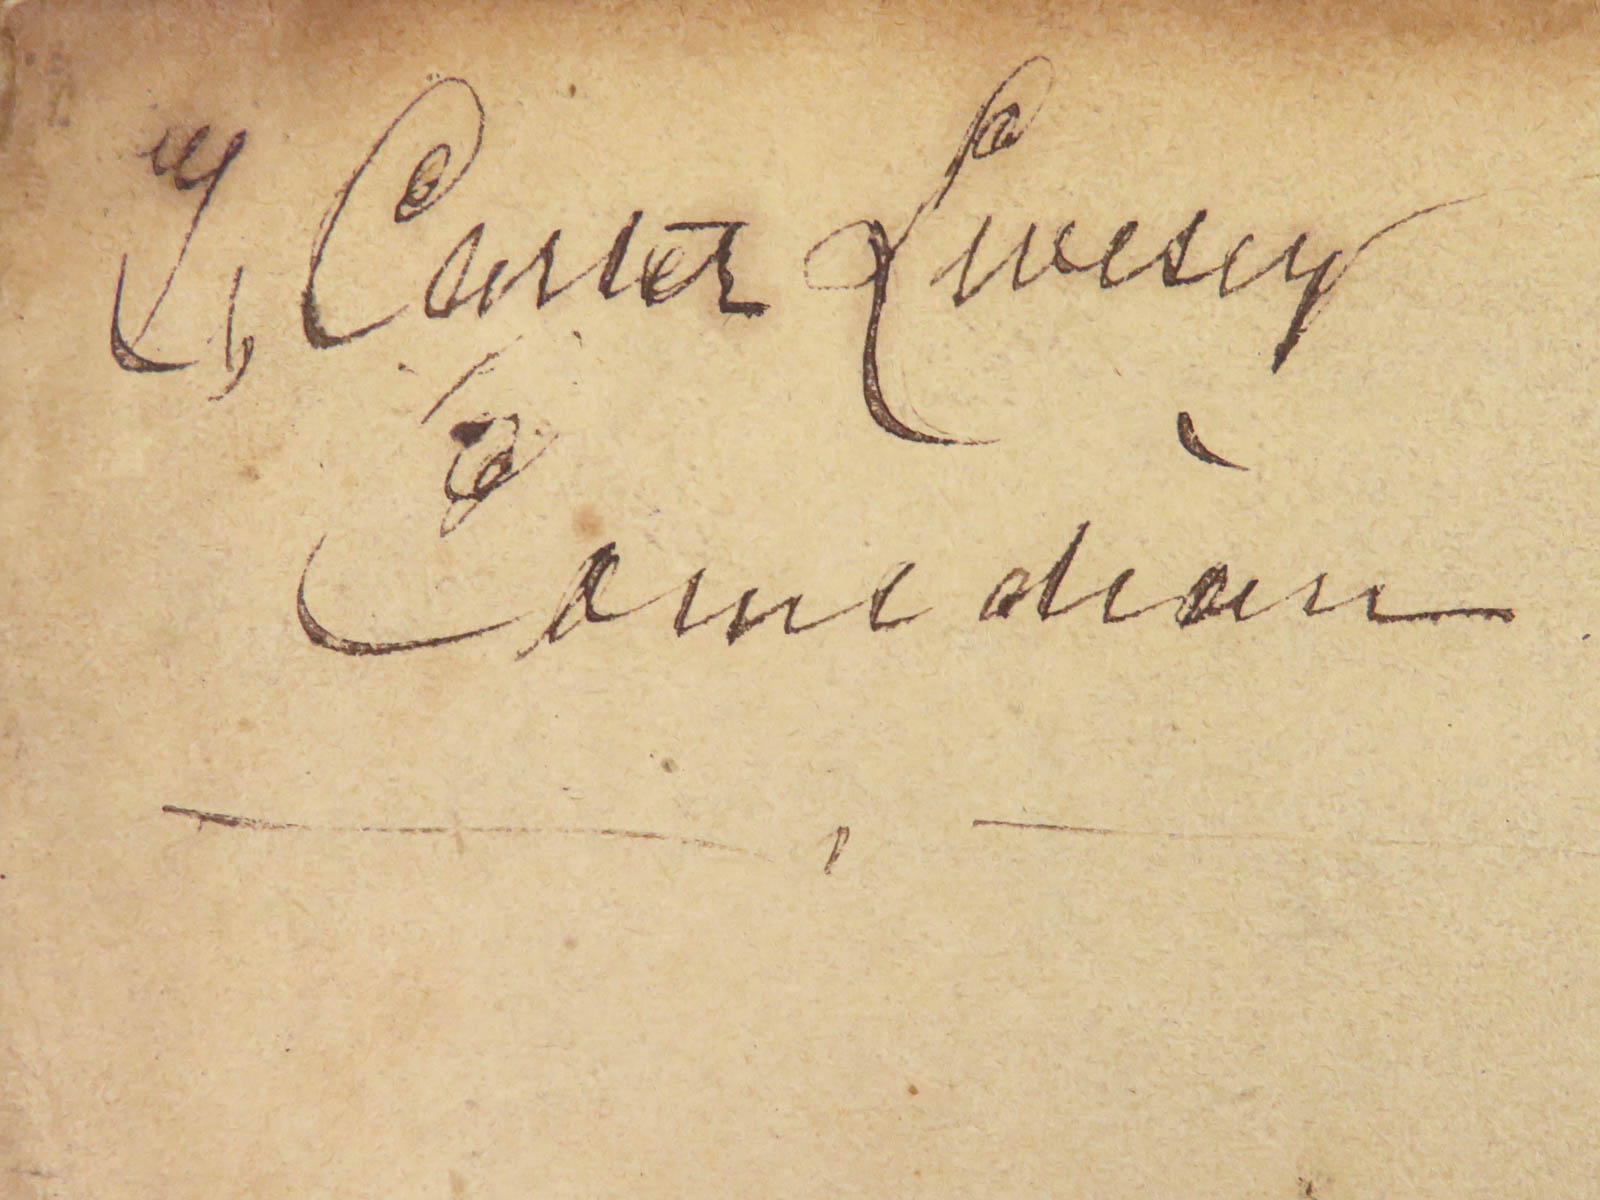 J, Carter Livesey
Comedian